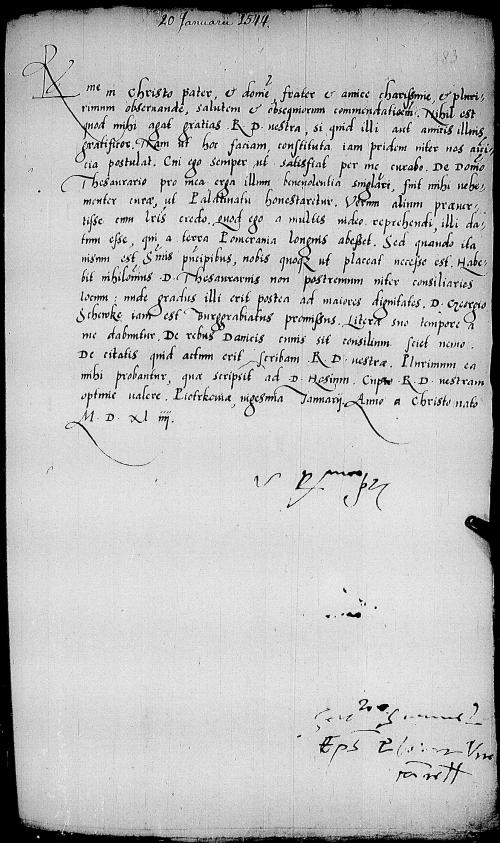 20 Januarii 1544.
83
Rme in Christo pater, et dome frater et amice charissime, et pluri-
rimum observande, salutem et obsequiorum commendationem. Nihil est
quod mihi agat gratias R. D. vestra, si quid illi aut amicis illius
gratificor. Nam ut hoc faciam, constituta iam pridem inter nos ami-
cia postulat. Cui ego semper ut satisfiat per me curabo. De Domo
Thesaurario pro mea erga illum benevolentia singulari, fuit mihi vehe-
menter curæ, ut Palatinatu honestaretur. Verum alium præver-
tisse cum lris credo, quod ego a multis video reprehendi, illi da-
tum esse, qui a terra Pomerania longius abesset. Sed quando ita
visum est Smis principibus, nobis quoque ut placeat necesse est. Habe-
bit nihilominus D. Thesaurarius non postremum inter consiliarios
locum: unde gradus illi erit postea ad maiores dignitates. D. Georgio
Schewke iam est burggrabiatus promissus. Literæ suo tempore a
me dabuntur. De rebus Danicis cuius sit consilium sciet nemo.
De citatis quid actum erit scribam R. D. vestræ. Plurimum ea
mihi probantur, quæ scripsit ad D. Hosium. Cupio R. D. vestram
optime valere. Piotrkowiæ, vigesima Januarij. Anno a Christo nato
M. D. xl iiij.